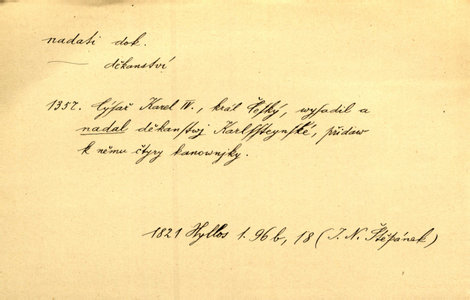 nadati dok.
děkanství
1357. Cýsař Karel IV., král Český, wysadil a
nadal děkanstwj Karlssteynské, přidaw
k němu čtyry kanownjky.
1821 Hyllos 1. 96b, 18 (J. N. Štěpánek)